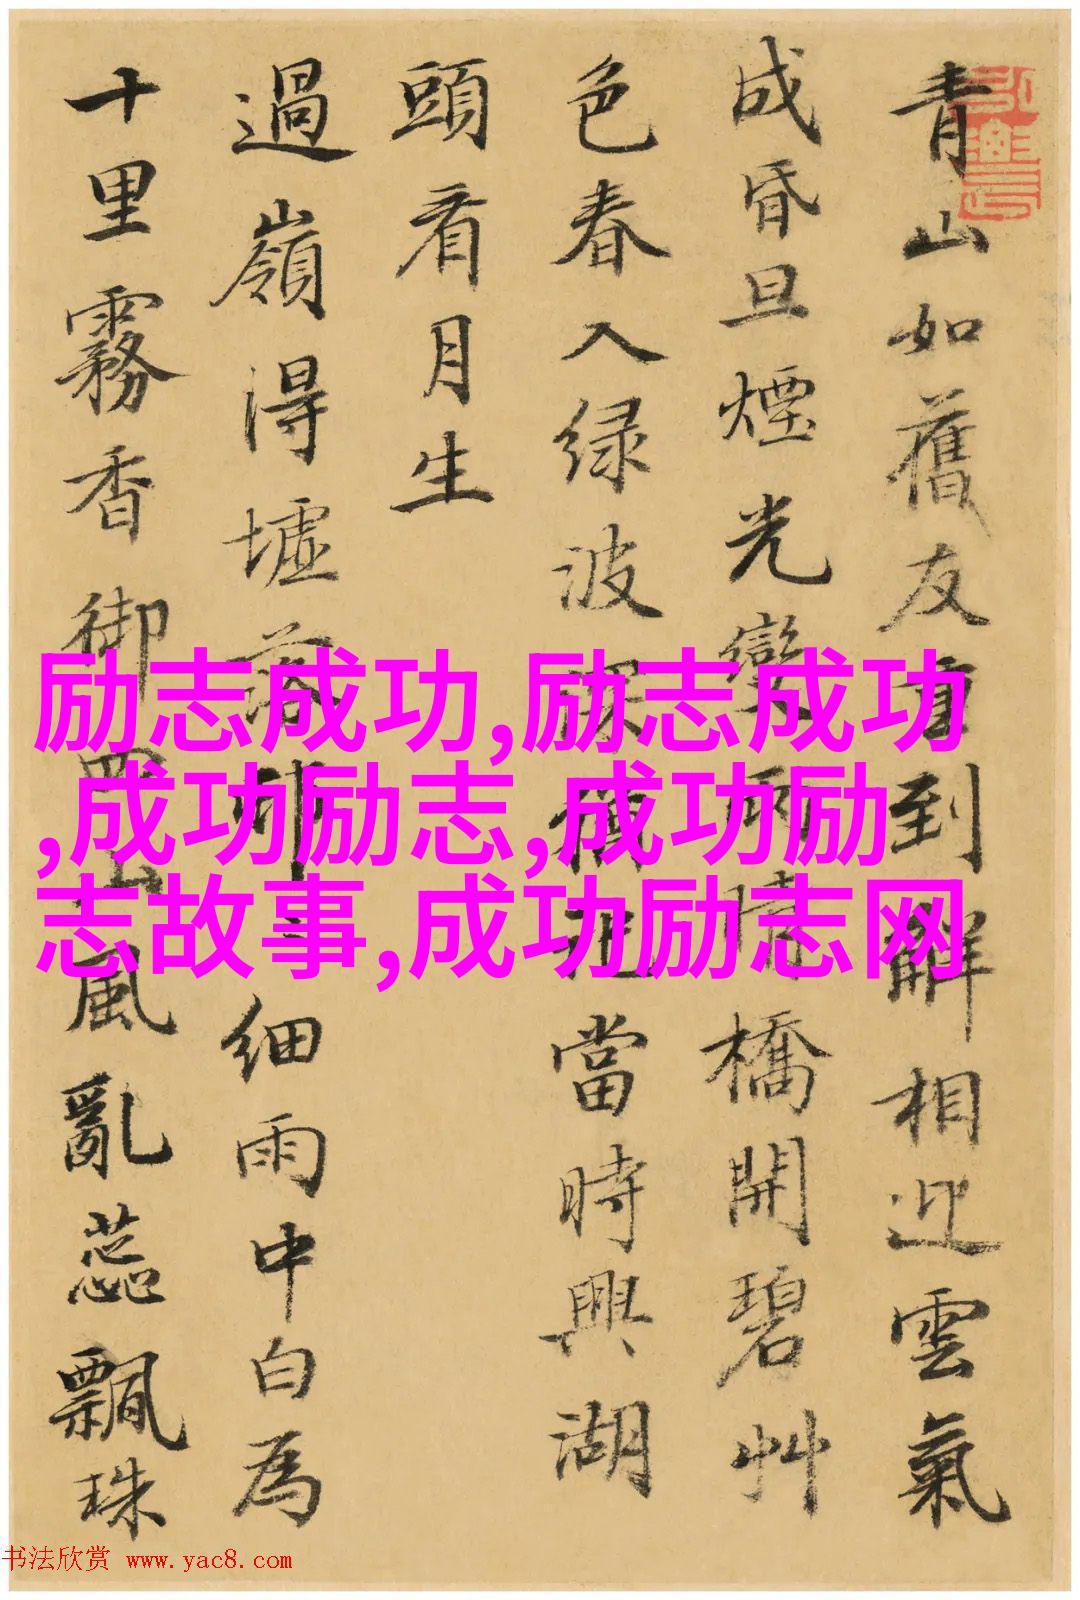 青山如舊友重到解相迎雲氣
成昏旦煙光變雨晴橋開碧艸
色春入緑波深當時興湖
頭看月生
過嶺得墟落細雨中白為
十里霧香御四山風亂蕊飄珠
励志成功,励志成功
,成功励志,成功励
志故事,成功励志网
书法欣赏 www.yac8.com